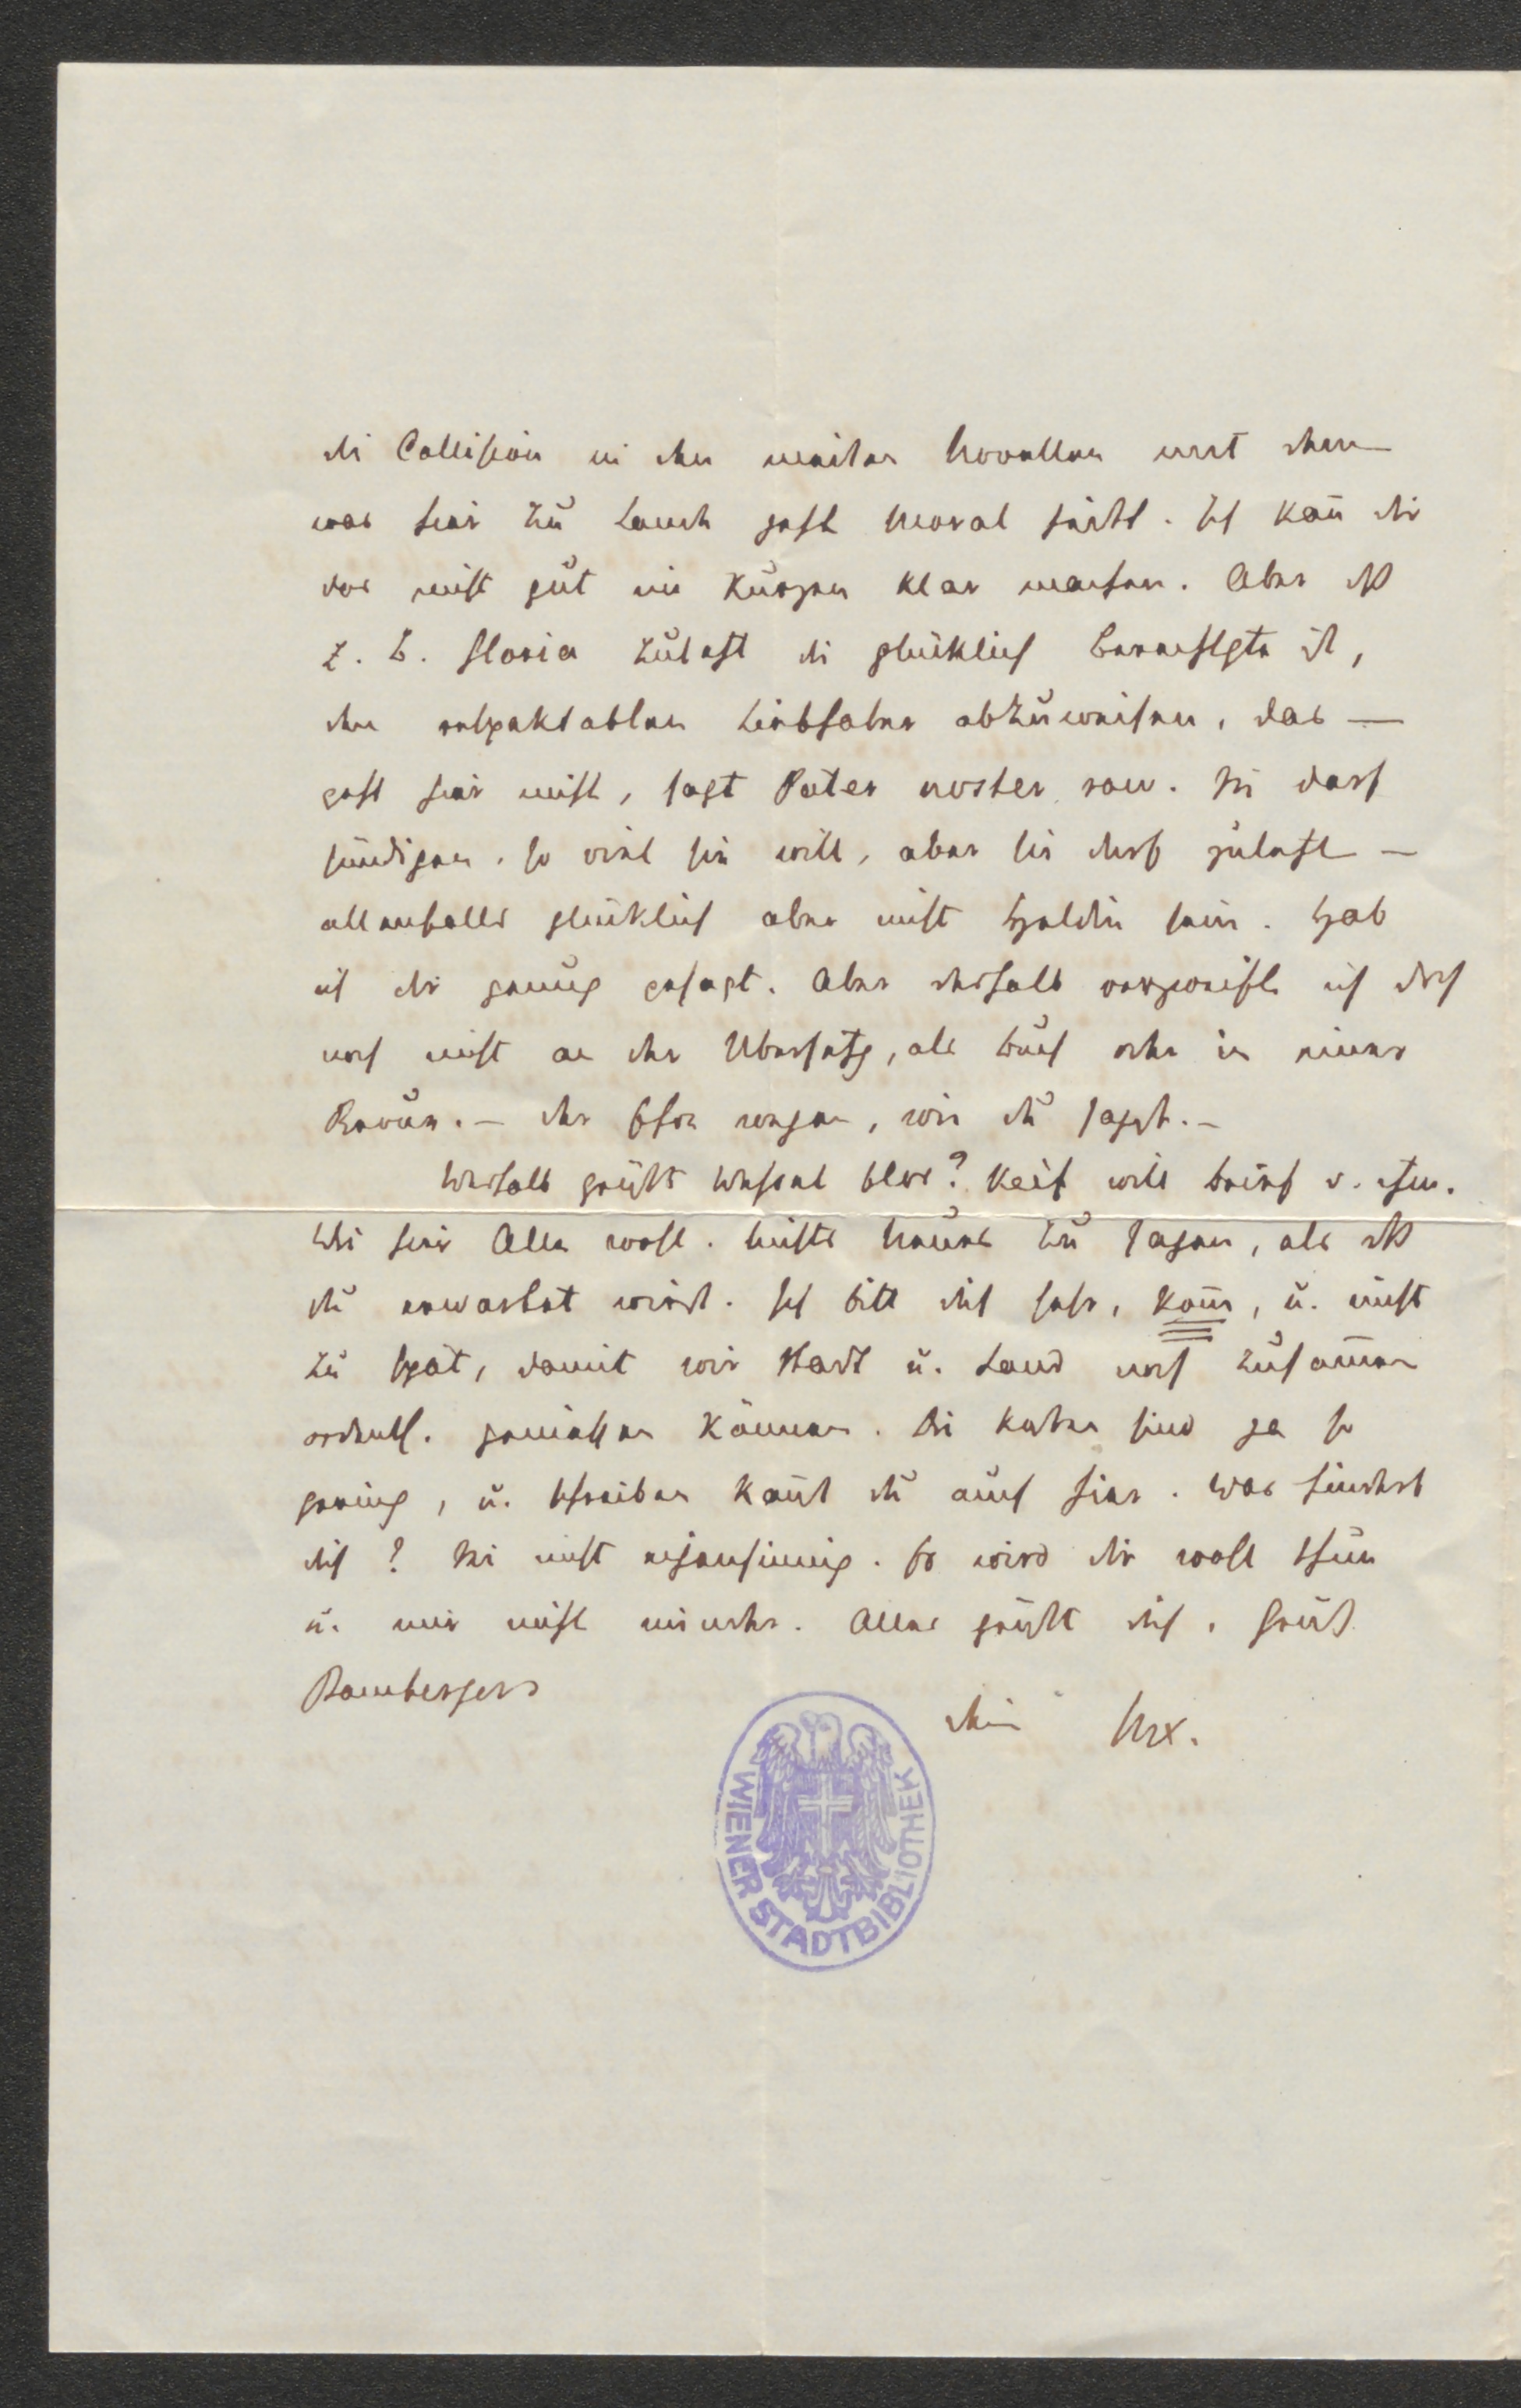 die Collision in den meisten Novellen mit dem
was hier zu Lande jetzt Moral heißt. Ich kañ dir
das nicht gut im Kurzen klar machen. Aber daß
z. B. Gloria zuletzt die glücklich Berechtigte ist,
den respektablen Liebhaber abzuweisen, das —
geht hier nicht, sagt Pater noster row. Sie darf
sündigen, so viel sie will, aber sie darf zuletzt —
allenfalls glücklich aber nicht Heldin sein. Hab
ich dir genug gesagt. Aber deshalb verzweifle ich doch
noch nicht an der Übersetzg, als Buch oder in einer
Revue. — der Ehre wegen, wie du sagst. —
Weshalb grüßt blos? will Brief v. ihm.
Wir hier Alle wohl. Nichts Neues zu sagen, als daß
du erwartet wirst. Ich bitt dich sehr, kom̄, u. nicht
zu spät, damit wir Stadt u. Land noch zusam̄en
ordentl. genießen können. Die Kosten sind ja so
gering, u. schreiben kañst du auch hier. Was hindert
dich? Sei nicht eigensinnig. Es wird dir wohl thun
u. mir nicht minder. Alles grüßt dich. Grüß
Bambergers
dein
WIENER STADTBIBLIOTHEK